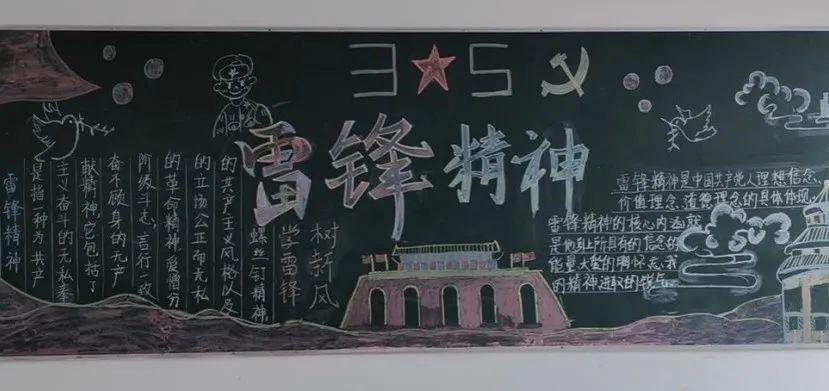 3★5
雷锋精神
学雷锋
树新风
雷锋精神
是指一种为共产
主义奋斗的无私奉
献精神,它包括了
奋不顾身的无产
阶级斗志,言行一致
的革命精神,爱憎分
的立场公正而无私
的共产主义风格以及
螺丝钉精神,
雷锋精神是中国共产党人理想信念、
价值理念、道德理念的具体体现,
雷锋精神的核心内涵就
是他身上所具有的信念的
能量大爱的胸怀忘我
的精神进取的锐气